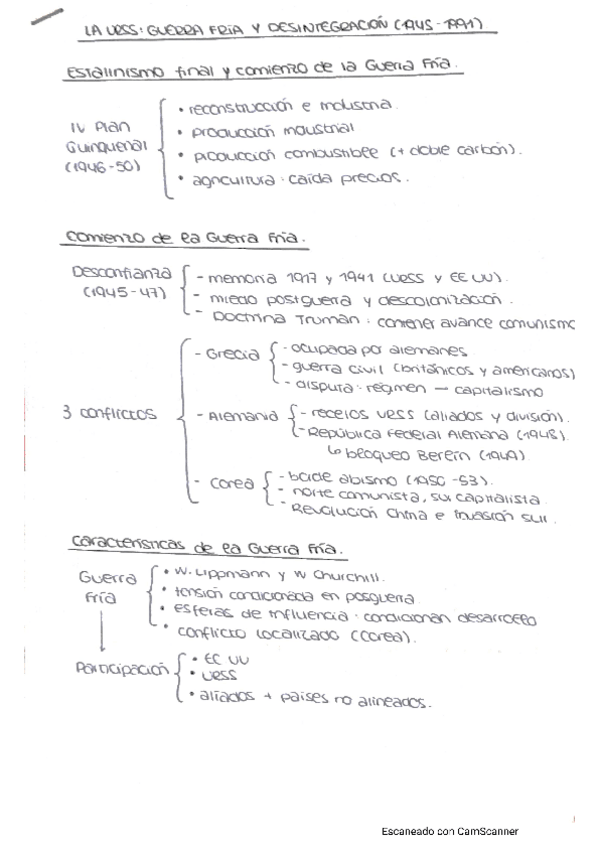 LA URSS: GUERRA FRÍA Y DESINTEGRACIÓN (1945-1991)
Estalinismo final y comienzo de la Guerra Fría.
IV Plan Quinquenal (1946-50)
• reconstrucción e industria.
• producción industrial
• producción combustible (+ doble carbón).
• agricultura: caída precios.
Comienzo de la Guerra Fría.
Desconfianza (1945-47)
- memoria 1917 y 1941 (URSS y EE UU).
- miedo postguerra y descolonización.
- Doctrina Truman: contener avance comunismo
3 conflictos
- Grecia
- ocupada por alemanes.
- guerra civil (británicos y americanos)
- disputa: régimen — capitalismo
- Alemania
- recelos URSS (aliados y división).
- República Federal Alemana (1948).
↳ bloqueo Berlín (1949).
- Corea
- borde abismo (1950-53).
- norte comunista, sur capitalista.
- Revolución China e invasión sur.
Características de la Guerra Fría.
Guerra Fría
• W. Lippmann y W Churchill.
• tensión condicionada en posguerra.
• esferas de influencia: condicionan desarrollo
• conflicto localizado (Corea).
Participación
• EE UU
• URSS
• aliados + países no alineados.
Escaneado con CamScanner